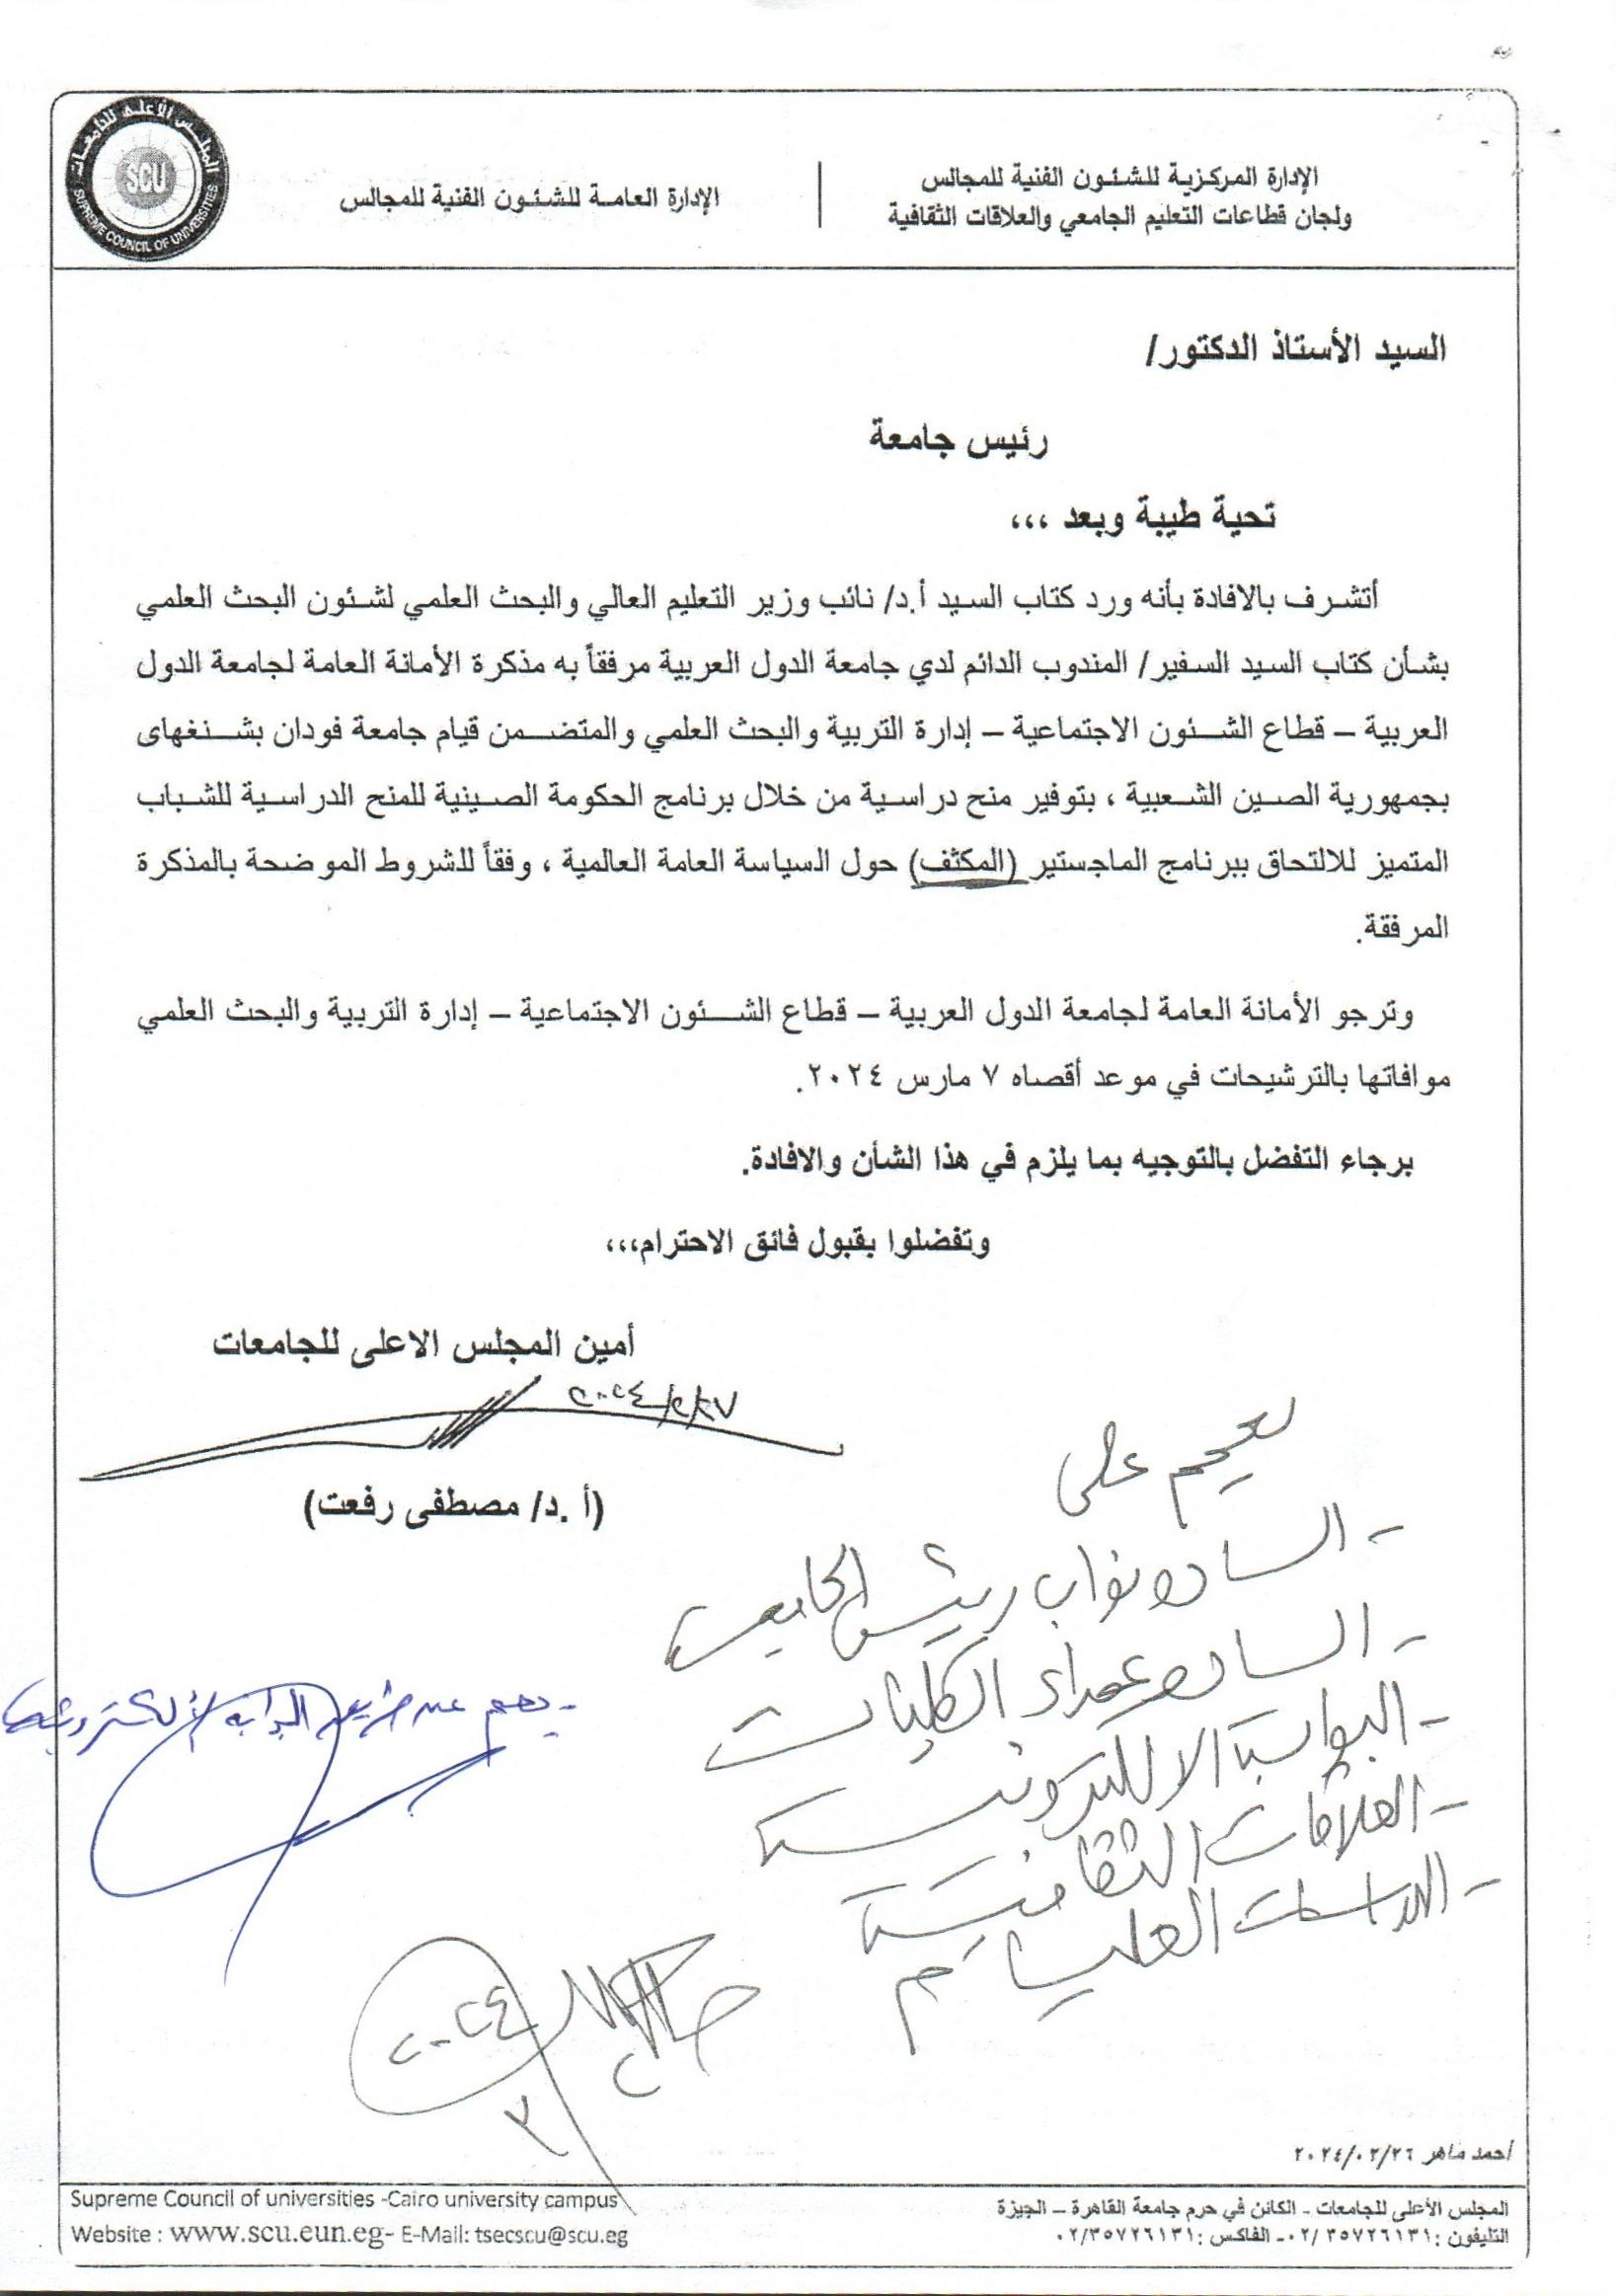 المجلس الأعلى للجامعات
SCU
SUPREME COUNCIL OF UNIVERSITIES
الإدارة المركزية للشئون الفنية للمجالس
ولجان قطاعات التعليم الجامعي والعلاقات الثقافية
الإدارة العامة للشئون الفنية للمجالس
السيد الأستاذ الدكتور/
رئيس جامعة
تحية طيبة وبعد ،،،
أتشرف بالافادة بأنه ورد كتاب السيد أ.د/ نائب وزير التعليم العالي والبحث العلمي لشئون البحث العلمي
بشأن كتاب السيد السفير/ المندوب الدائم لدي جامعة الدول العربية مرفقاً به مذكرة الأمانة العامة لجامعة الدول
العربية – قطاع الشئون الاجتماعية – إدارة التربية والبحث العلمي والمتضمن قيام جامعة فودان بشنغهاى
بجمهورية الصين الشعبية ، بتوفير منح دراسية من خلال برنامج الحكومة الصينية للمنح الدراسية للشباب
المتميز للالتحاق ببرنامج الماجستير (المكثف) حول السياسة العامة العالمية ، وفقاً للشروط الموضحة بالمذكرة
المرفقة.
وترجو الأمانة العامة لجامعة الدول العربية – قطاع الشئون الاجتماعية – إدارة التربية والبحث العلمي
موافاتها بالترشيحات في موعد أقصاه ٧ مارس ٢٠٢٤.
برجاء التفضل بالتوجيه بما يلزم في هذا الشأن والافادة.
وتفضلوا بقبول فائق الاحترام،،،
أمين المجلس الاعلى للجامعات
٢٠٢٤/٢/٢٧
(أ .د/ مصطفى رفعت)
يعمم على
- السادة نواب رئيس الجامعة
- السادة عمداء الكليات
- البوابة الالكترونية
- العلاقات الثقافية
- الدراسات العليا
- يعمم عن طريق البوابة الألكترونية
٢٠٢٤
٣
أحمد ماهر ٢٠٢٤/٠٢/٢٦
المجلس الأعلى للجامعات - الكائن في حرم جامعة القاهرة – الجيزة
التليفون :٣٥٧٢٦١٣١ /٠٢- الفاكس :٠٢/٣٥٧٢٦١٣١
Supreme Council of universities -Cairo university campus
Website : www.scu.eun.eg- E-Mail: tsecscu@scu.eg